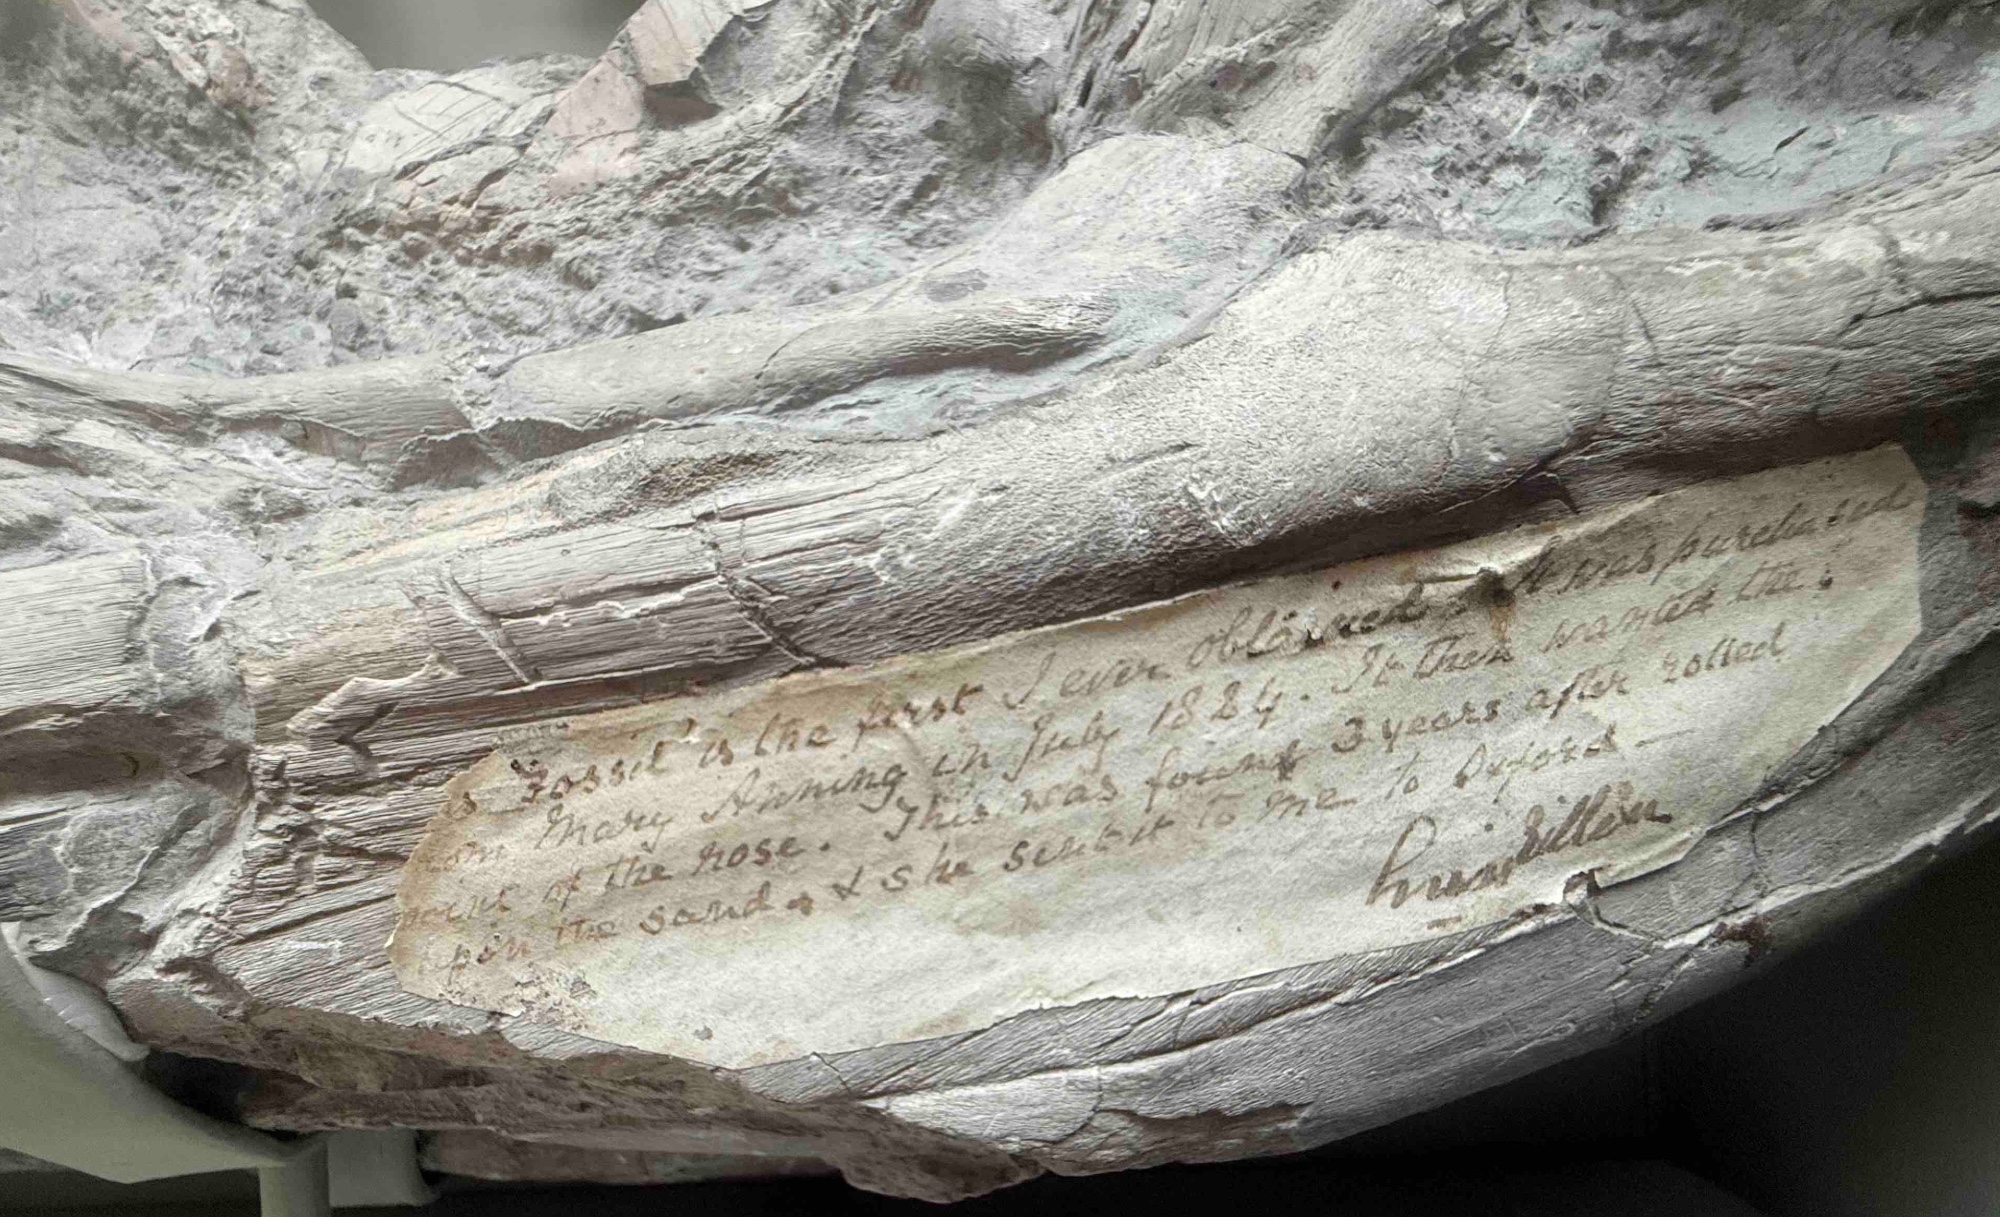 Fossil is the first I ever obtained. It was purchased
Mary Anning in July 1824. It then wanted the
point of the nose. This was found 3 years after rolled
upon the sand, & she sent it to me to Oxford —